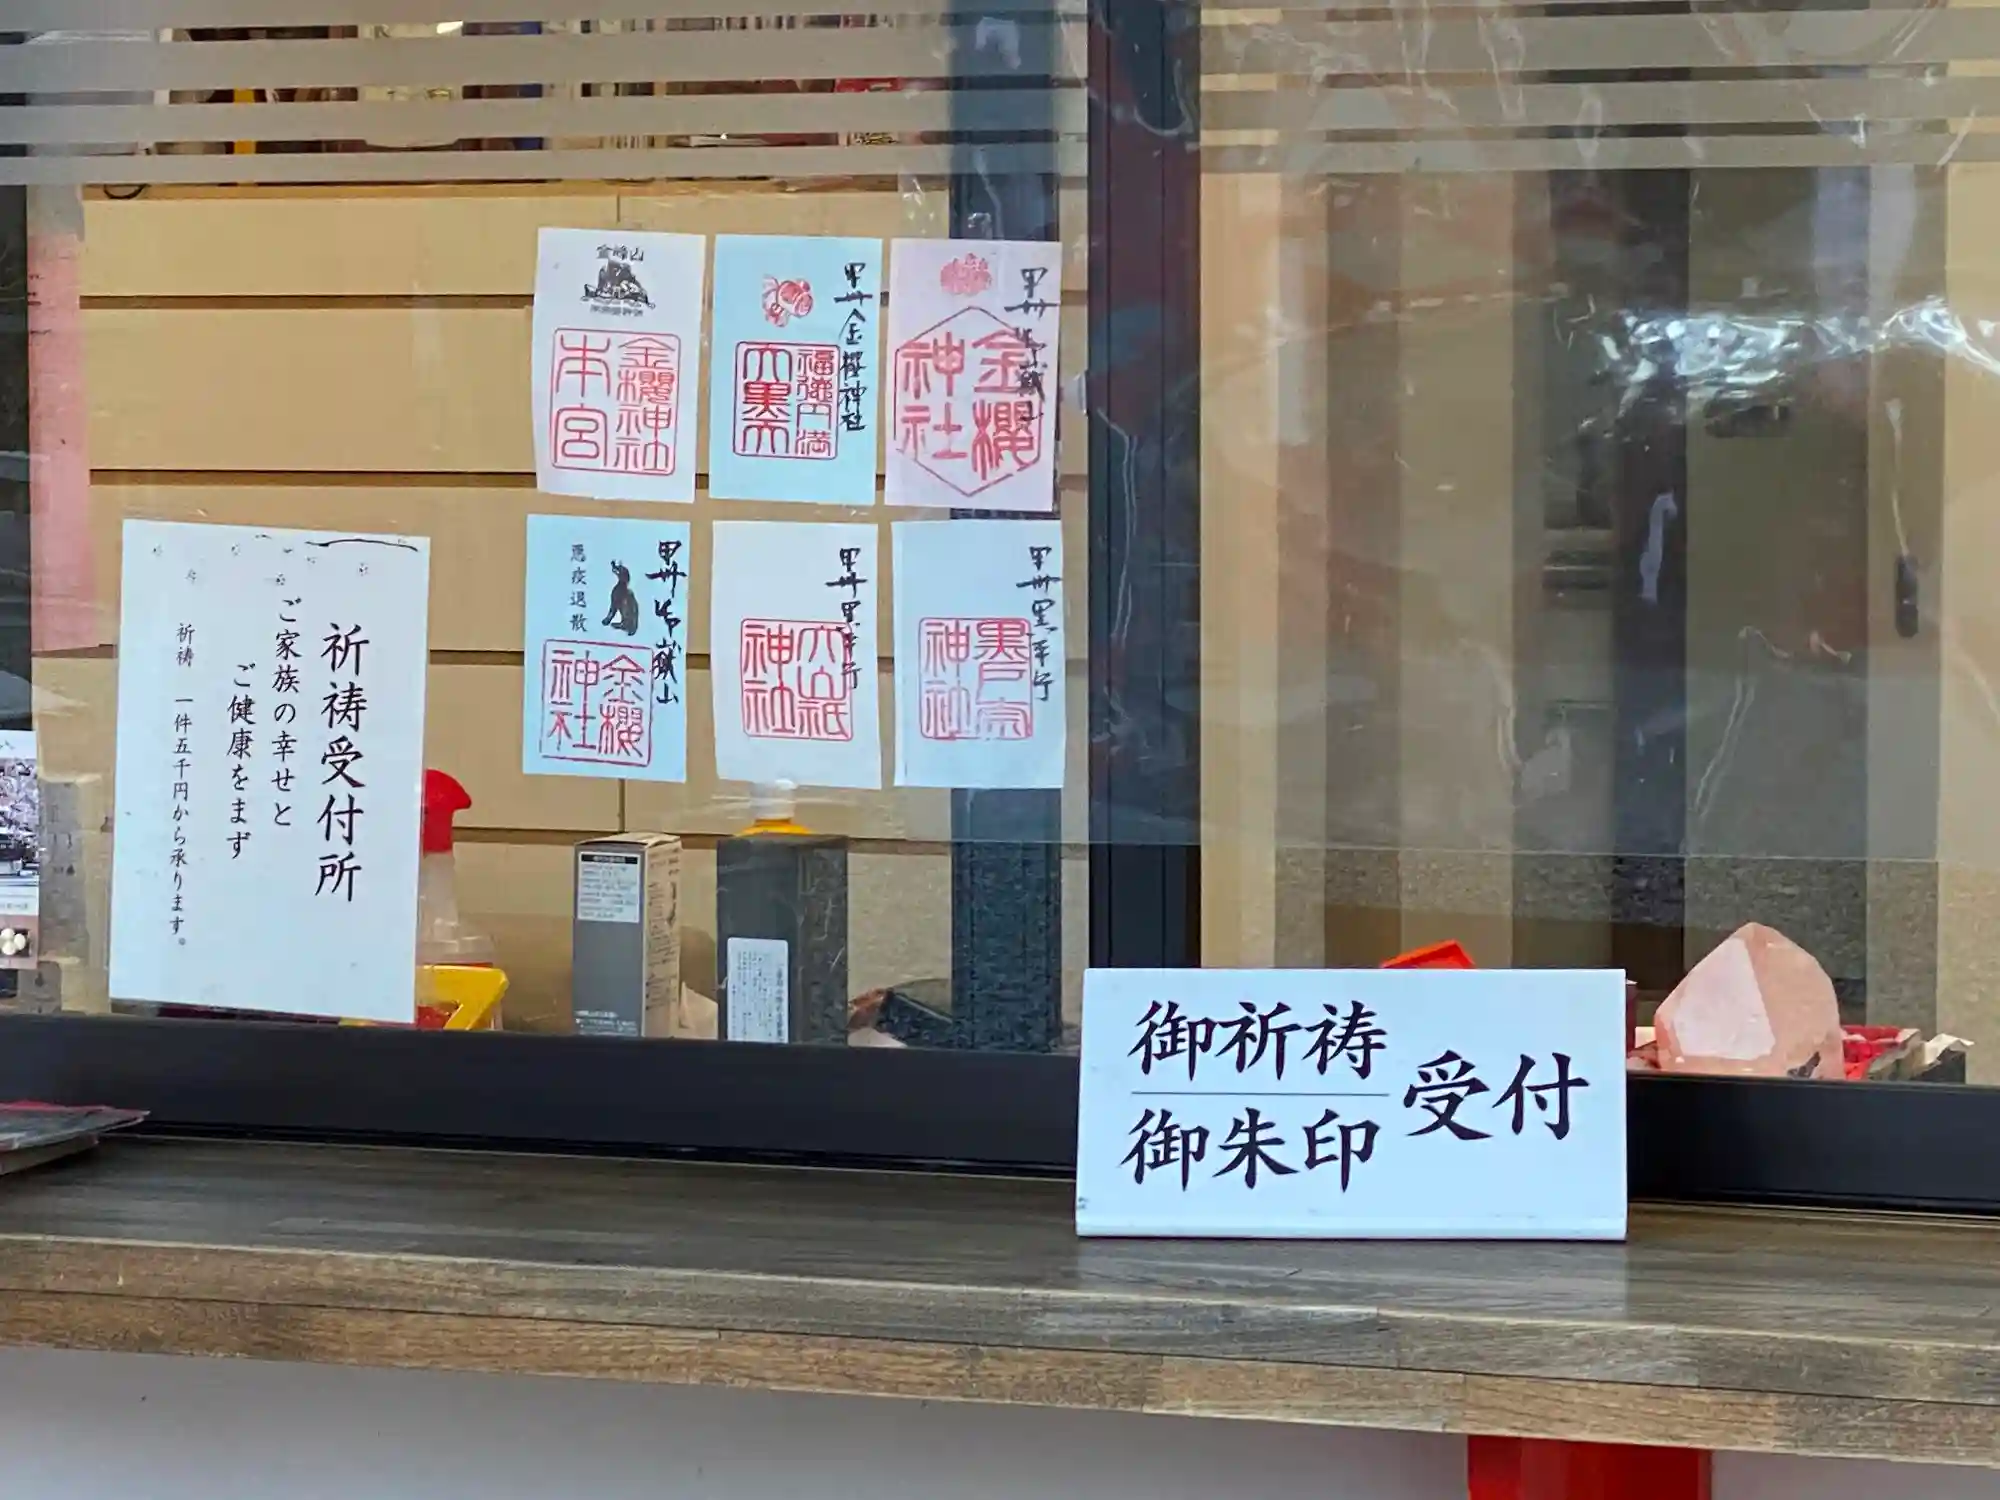 祈祷受付所
ご家族の幸せと
ご健康をまず
祈祷 一件五千円から承ります。
金峰山
金櫻神社
本宮
甲州金櫻神社
福徳円満
大黒天
甲州御嶽山
金櫻
神社
甲州御嶽山
悪疫退散
金櫻
神社
甲州黒平
大山祇
神社
甲州黒平
黒戸奈
神社
御祈祷
御朱印
受付